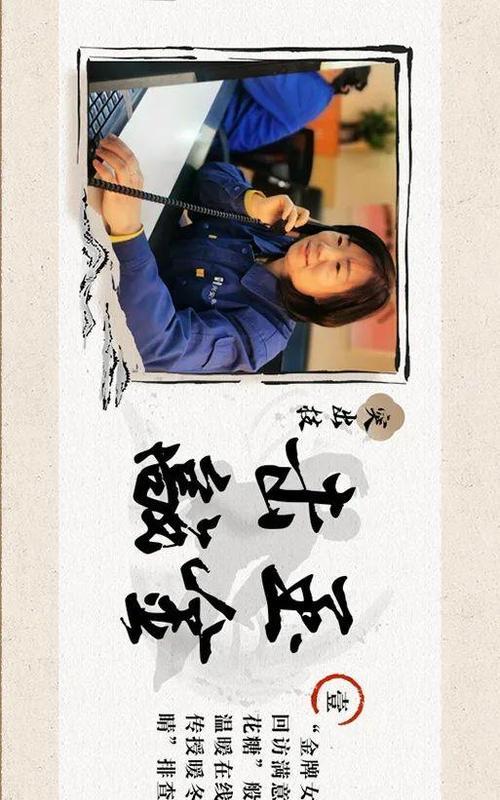 突出技
击玉
敲金
壹
“金牌女
回访满意
花糖”般
温暖在线
传授暖冬
晴”排查